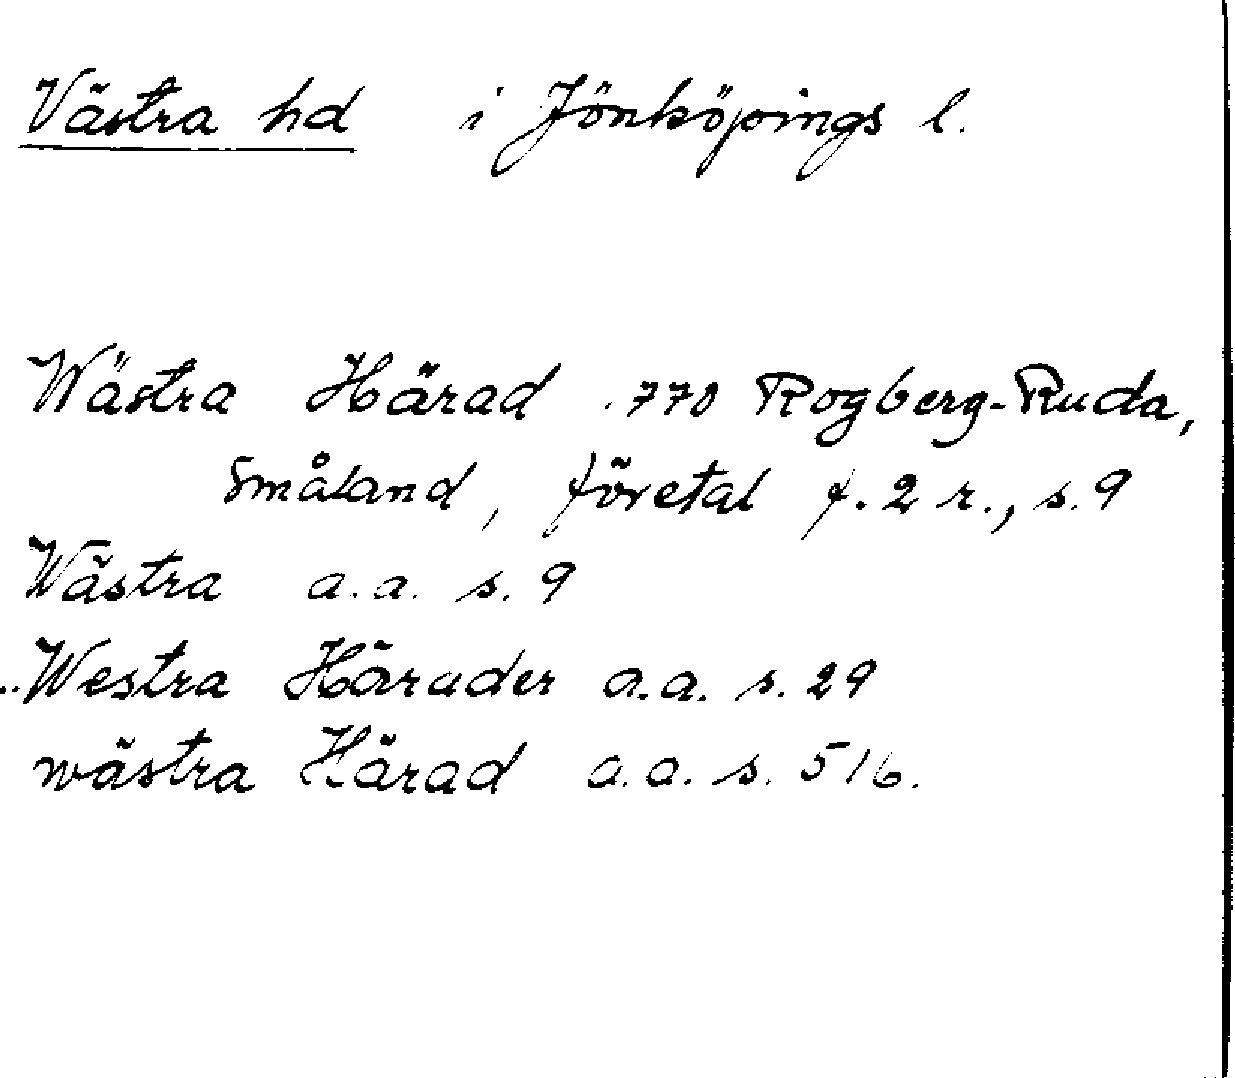 Västra hd i Jönköpings l.
Wästra Härad 770 Rogberg-Ruda,
Småland, företal f. 2 r., s. 9
Wästra a.a. s. 9
Westra Härader a.a. s. 29
wästra Härad a.a. s. 516.